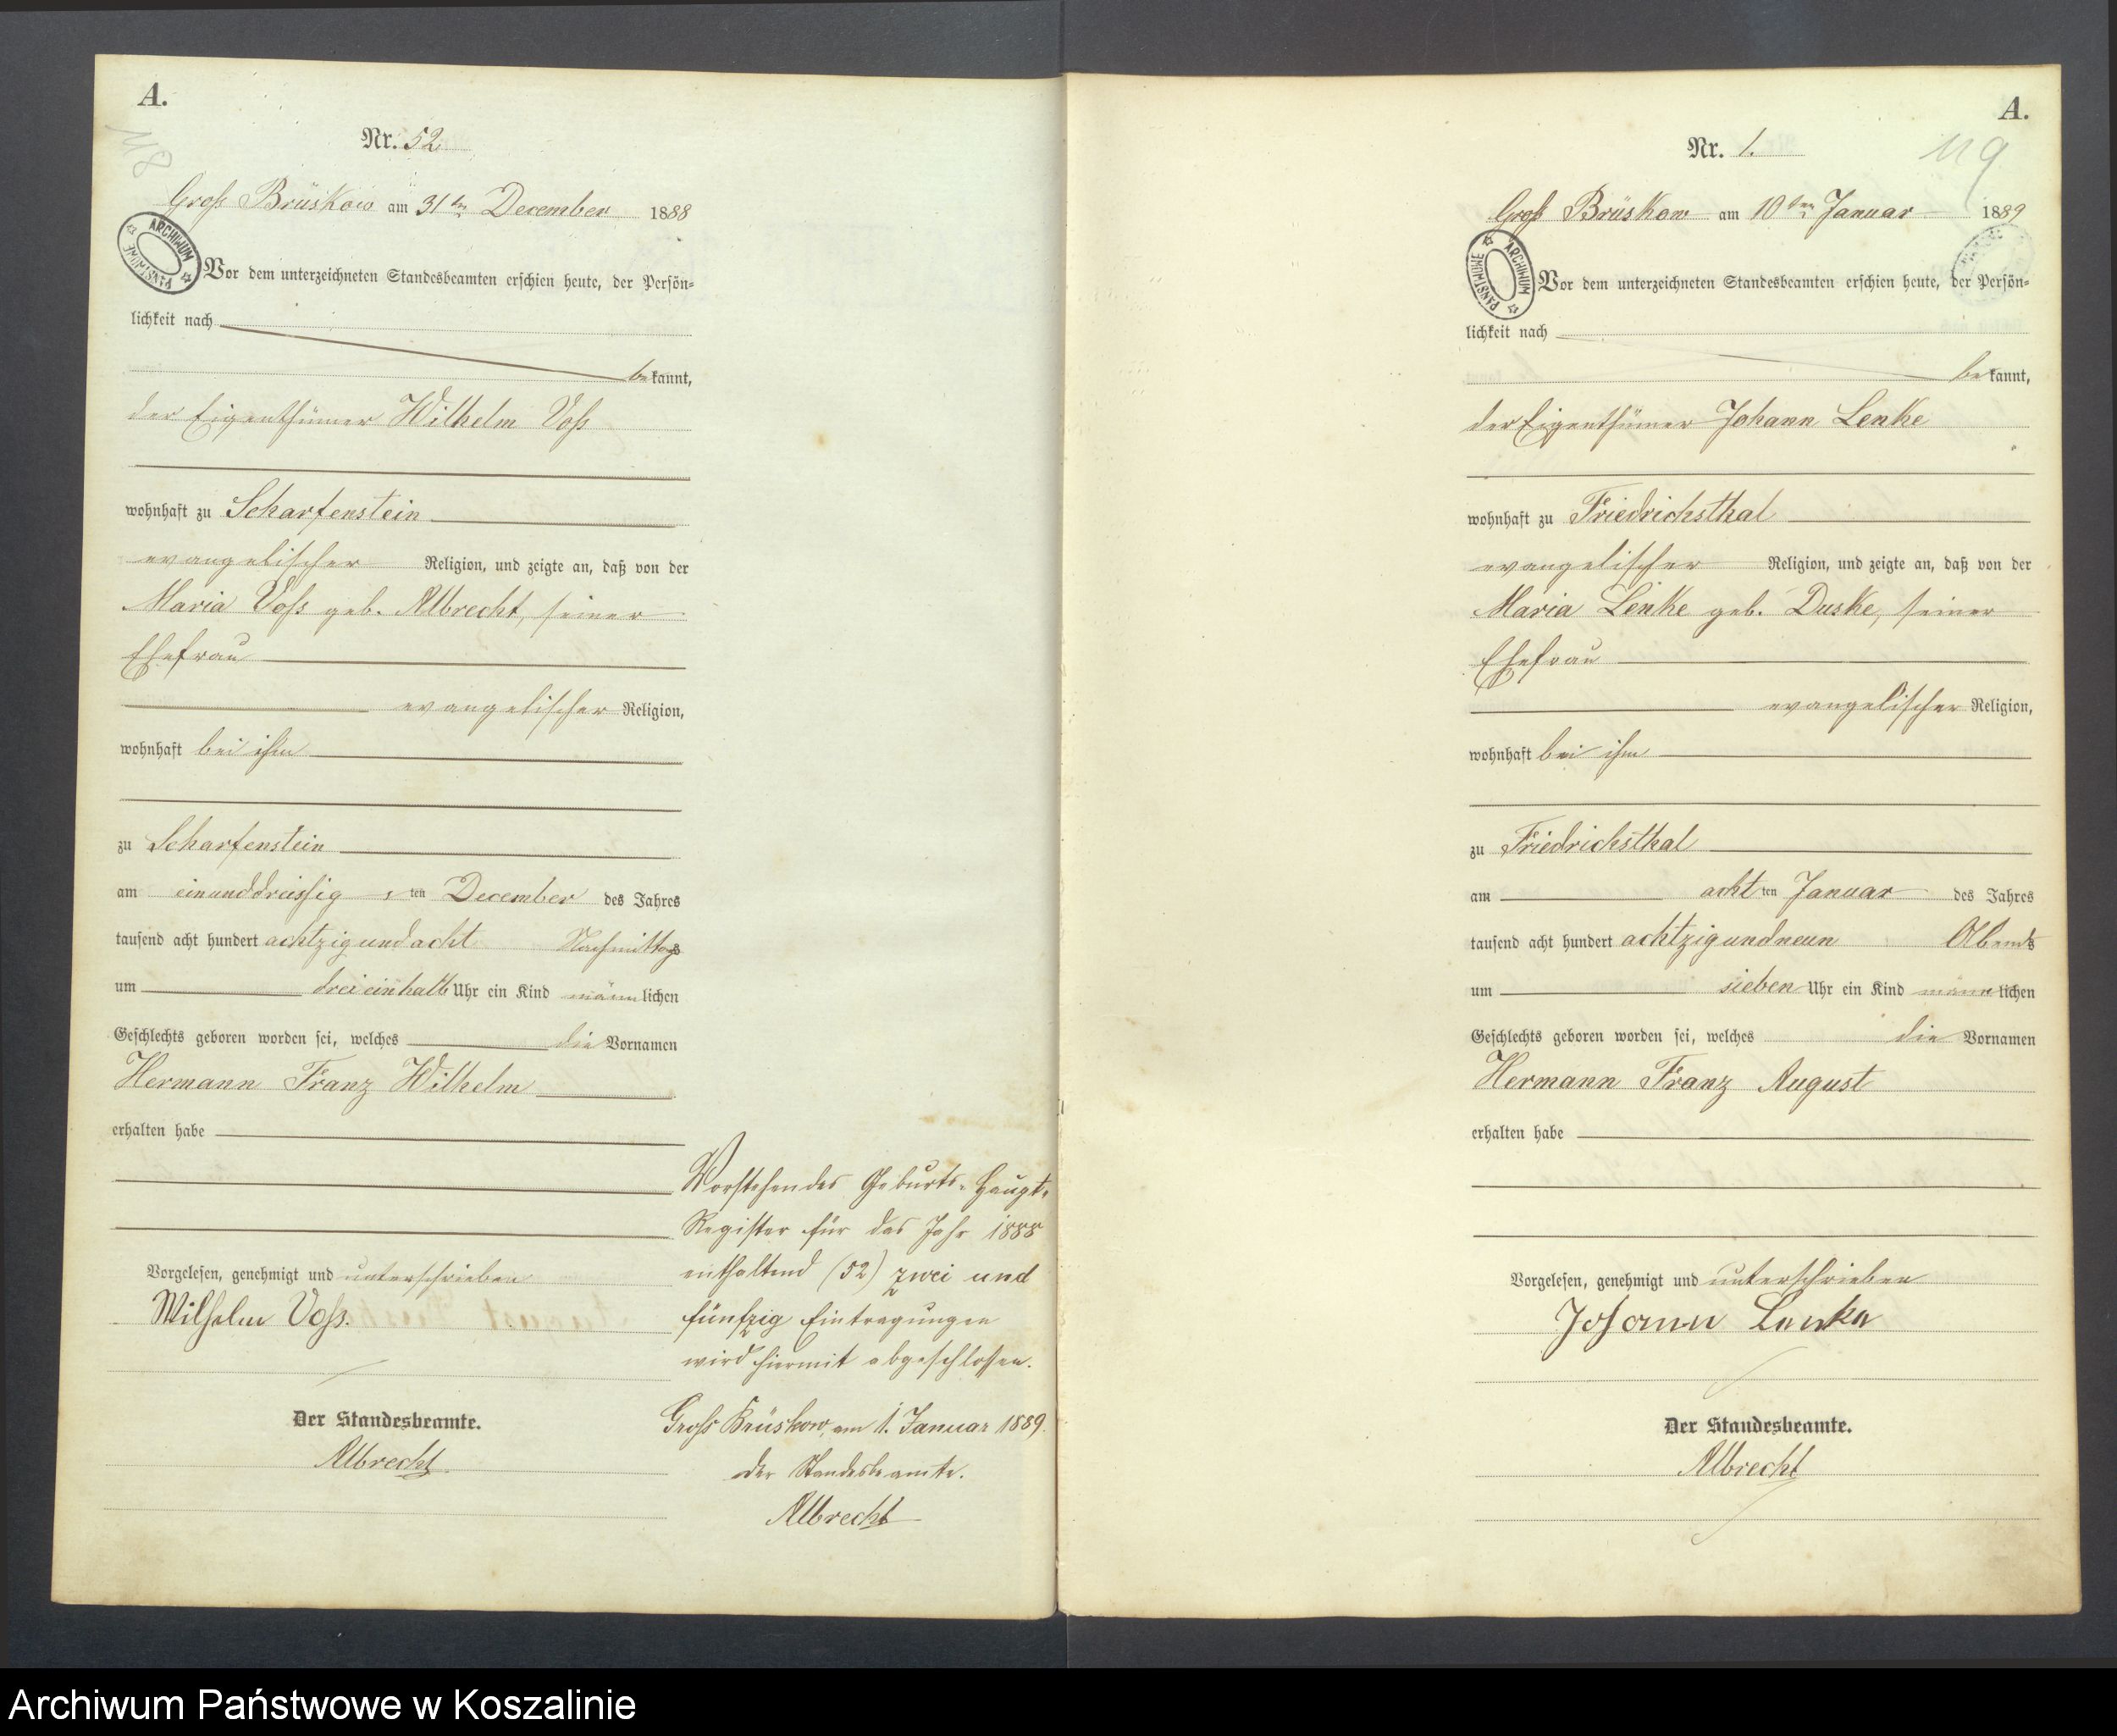 A.
118
Nr. 52
Groß Brüskow am 31ten December 1888
ARCHIWUM PAŃSTWOWE
Vor dem unterzeichneten Standesbeamten erschien heute, der Persön-
lichkeit nach
bekannt,
der Eigenthümer Wilhelm Voß
wohnhaft zu Scharfenstein
evangelischer Religion, und zeigte an, daß von der
Maria Voß geb. Albrecht, seiner
Ehefrau
evangelischer Religion,
wohnhaft bei ihm
zu Scharfenstein
am einunddreissig ten December des Jahres
tausend acht hundert achtzigundacht Nachmittags
um dreieinhalb Uhr ein Kind männlichen
Geschlechts geboren worden sei, welches die Vornamen
Hermann Franz Wilhelm
erhalten habe
Vorgelesen, genehmigt und unterschrieben
Wilhelm Voß.
Der Standesbeamte.
Albrecht
Vorstehendes Geburts-Haupt-
Register für das Jahr 1888
enthaltend (52) zwei und
fünfzig Eintragungen
wird hiermit abgeschlossen.
Groß Brüskow, am 1. Januar 1889.
Der Standesbeamte.
Albrecht
A.
119
Nr. 1.
Groß Brüskow am 10ten Januar 1889
ARCHIWUM PAŃSTWOWE
Vor dem unterzeichneten Standesbeamten erschien heute, der Persön-
lichkeit nach
bekannt,
der Eigenthümer Johann Lenke
wohnhaft zu Friedrichsthal
evangelischer Religion, und zeigte an, daß von der
Maria Lenke geb. Duske, seiner
Ehefrau
evangelischer Religion,
wohnhaft bei ihm
zu Friedrichsthal
am acht ten Januar des Jahres
tausend acht hundert achtzigundneun Abends
um sieben Uhr ein Kind männlichen
Geschlechts geboren worden sei, welches die Vornamen
Hermann Franz August
erhalten habe
Vorgelesen, genehmigt und unterschrieben
Johann Lenke
Der Standesbeamte.
Albrecht
Archiwum Państwowe w Koszalinie